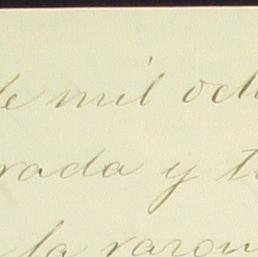 de mil och
rada y t
la razon